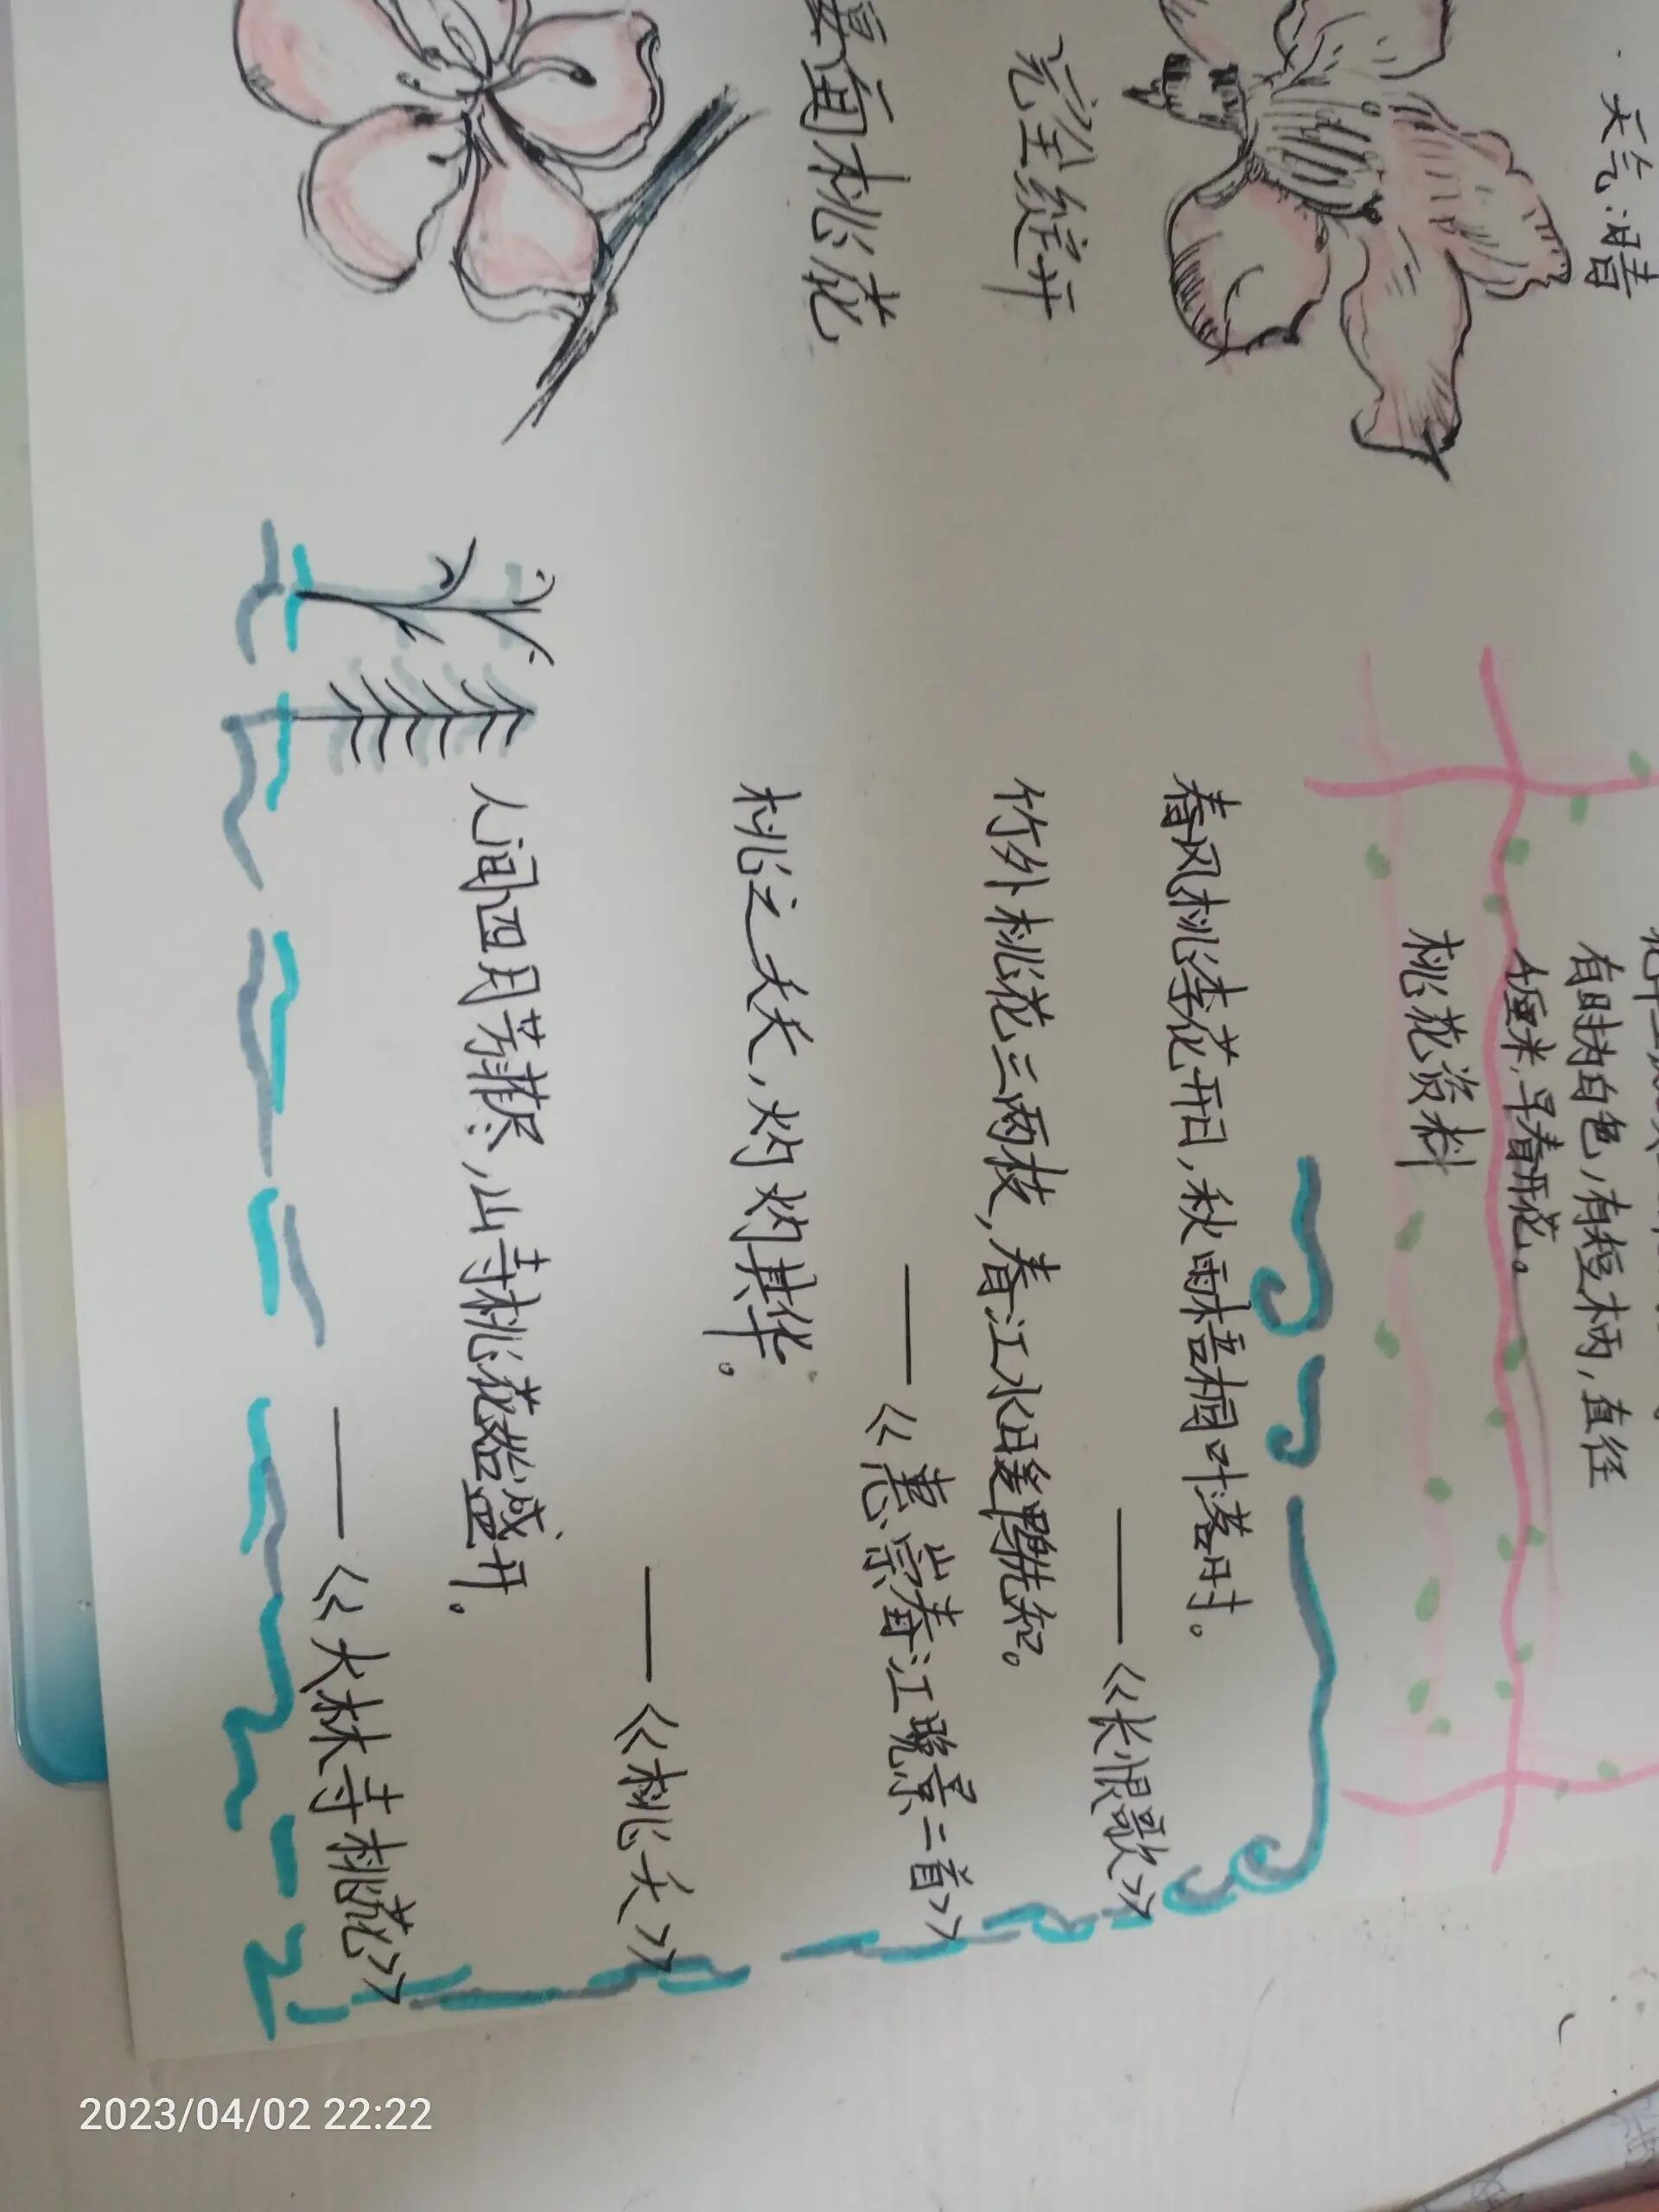 天气:晴
有时为白色,有短柄,直径
4厘米,早春开花。
桃花资料
完全绽开
桃花
春风桃李花开日,秋雨梧桐叶落时。
——《长恨歌》
竹外桃花三两枝,春江水暖鸭先知。
——《惠崇春江晚景二首》
桃之夭夭,灼灼其华。
——《桃夭》
人间四月芳菲尽,山寺桃花始盛开.
——《大林寺桃花》
2023/04/02 22:22